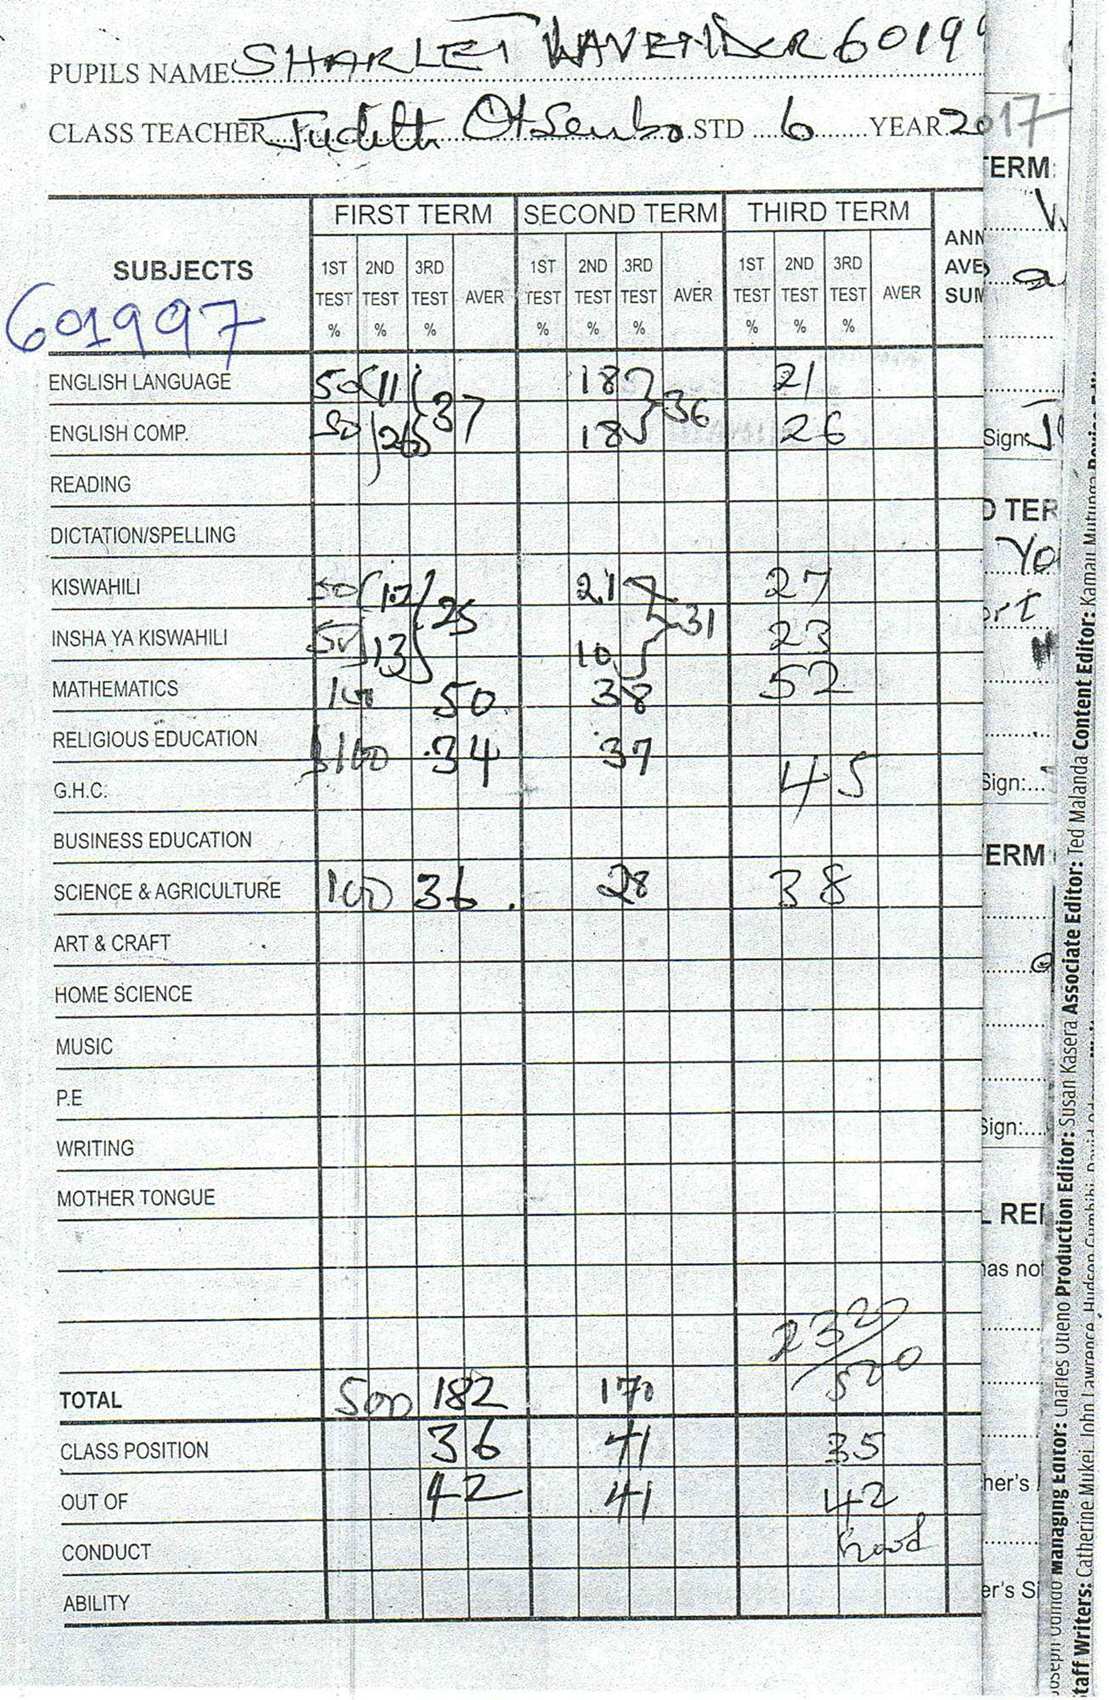 PUPILS NAME SHARLET LAVENDER 60199
CLASS TEACHER Judith Otsembo STD 6 YEAR 2017
FIRST TERM SECOND TERM THIRD TERM
SUBJECTS 1ST TEST % 2ND TEST % 3RD TEST % AVER 1ST TEST % 2ND TEST % 3RD TEST % AVER 1ST TEST % 2ND TEST % 3RD TEST % AVER ANN AVE SUM
601997
ENGLISH LANGUAGE 50 11 37 18 36 21
ENGLISH COMP. 50 26 18 26
READING
DICTATION/SPELLING
KISWAHILI 50 12 25 21 31 27
INSHA YA KISWAHILI 50 13 10 23
MATHEMATICS 100 50 38 52
RELIGIOUS EDUCATION 100 34 37 45
G.H.C.
BUSINESS EDUCATION
SCIENCE & AGRICULTURE 100 36 28 38
ART & CRAFT
HOME SCIENCE
MUSIC
P.E
WRITING
MOTHER TONGUE
232/500
TOTAL 500 182 170
CLASS POSITION 36 41 35
OUT OF 42 41 42
CONDUCT Good
ABILITY
ERM:
Sign:
D TER
Yo
ort
Sign:
ERM
Sign:
L REI
has not
her's
er's Si
Managing Editor: Charles Otieno Production Editor: Susan Kasera Associate Editor: Ted Malanda Content Editor: Kamau Mutunga
taff Writers: Catherine Mukei, John Lawrence, Hudson Gumbihi,